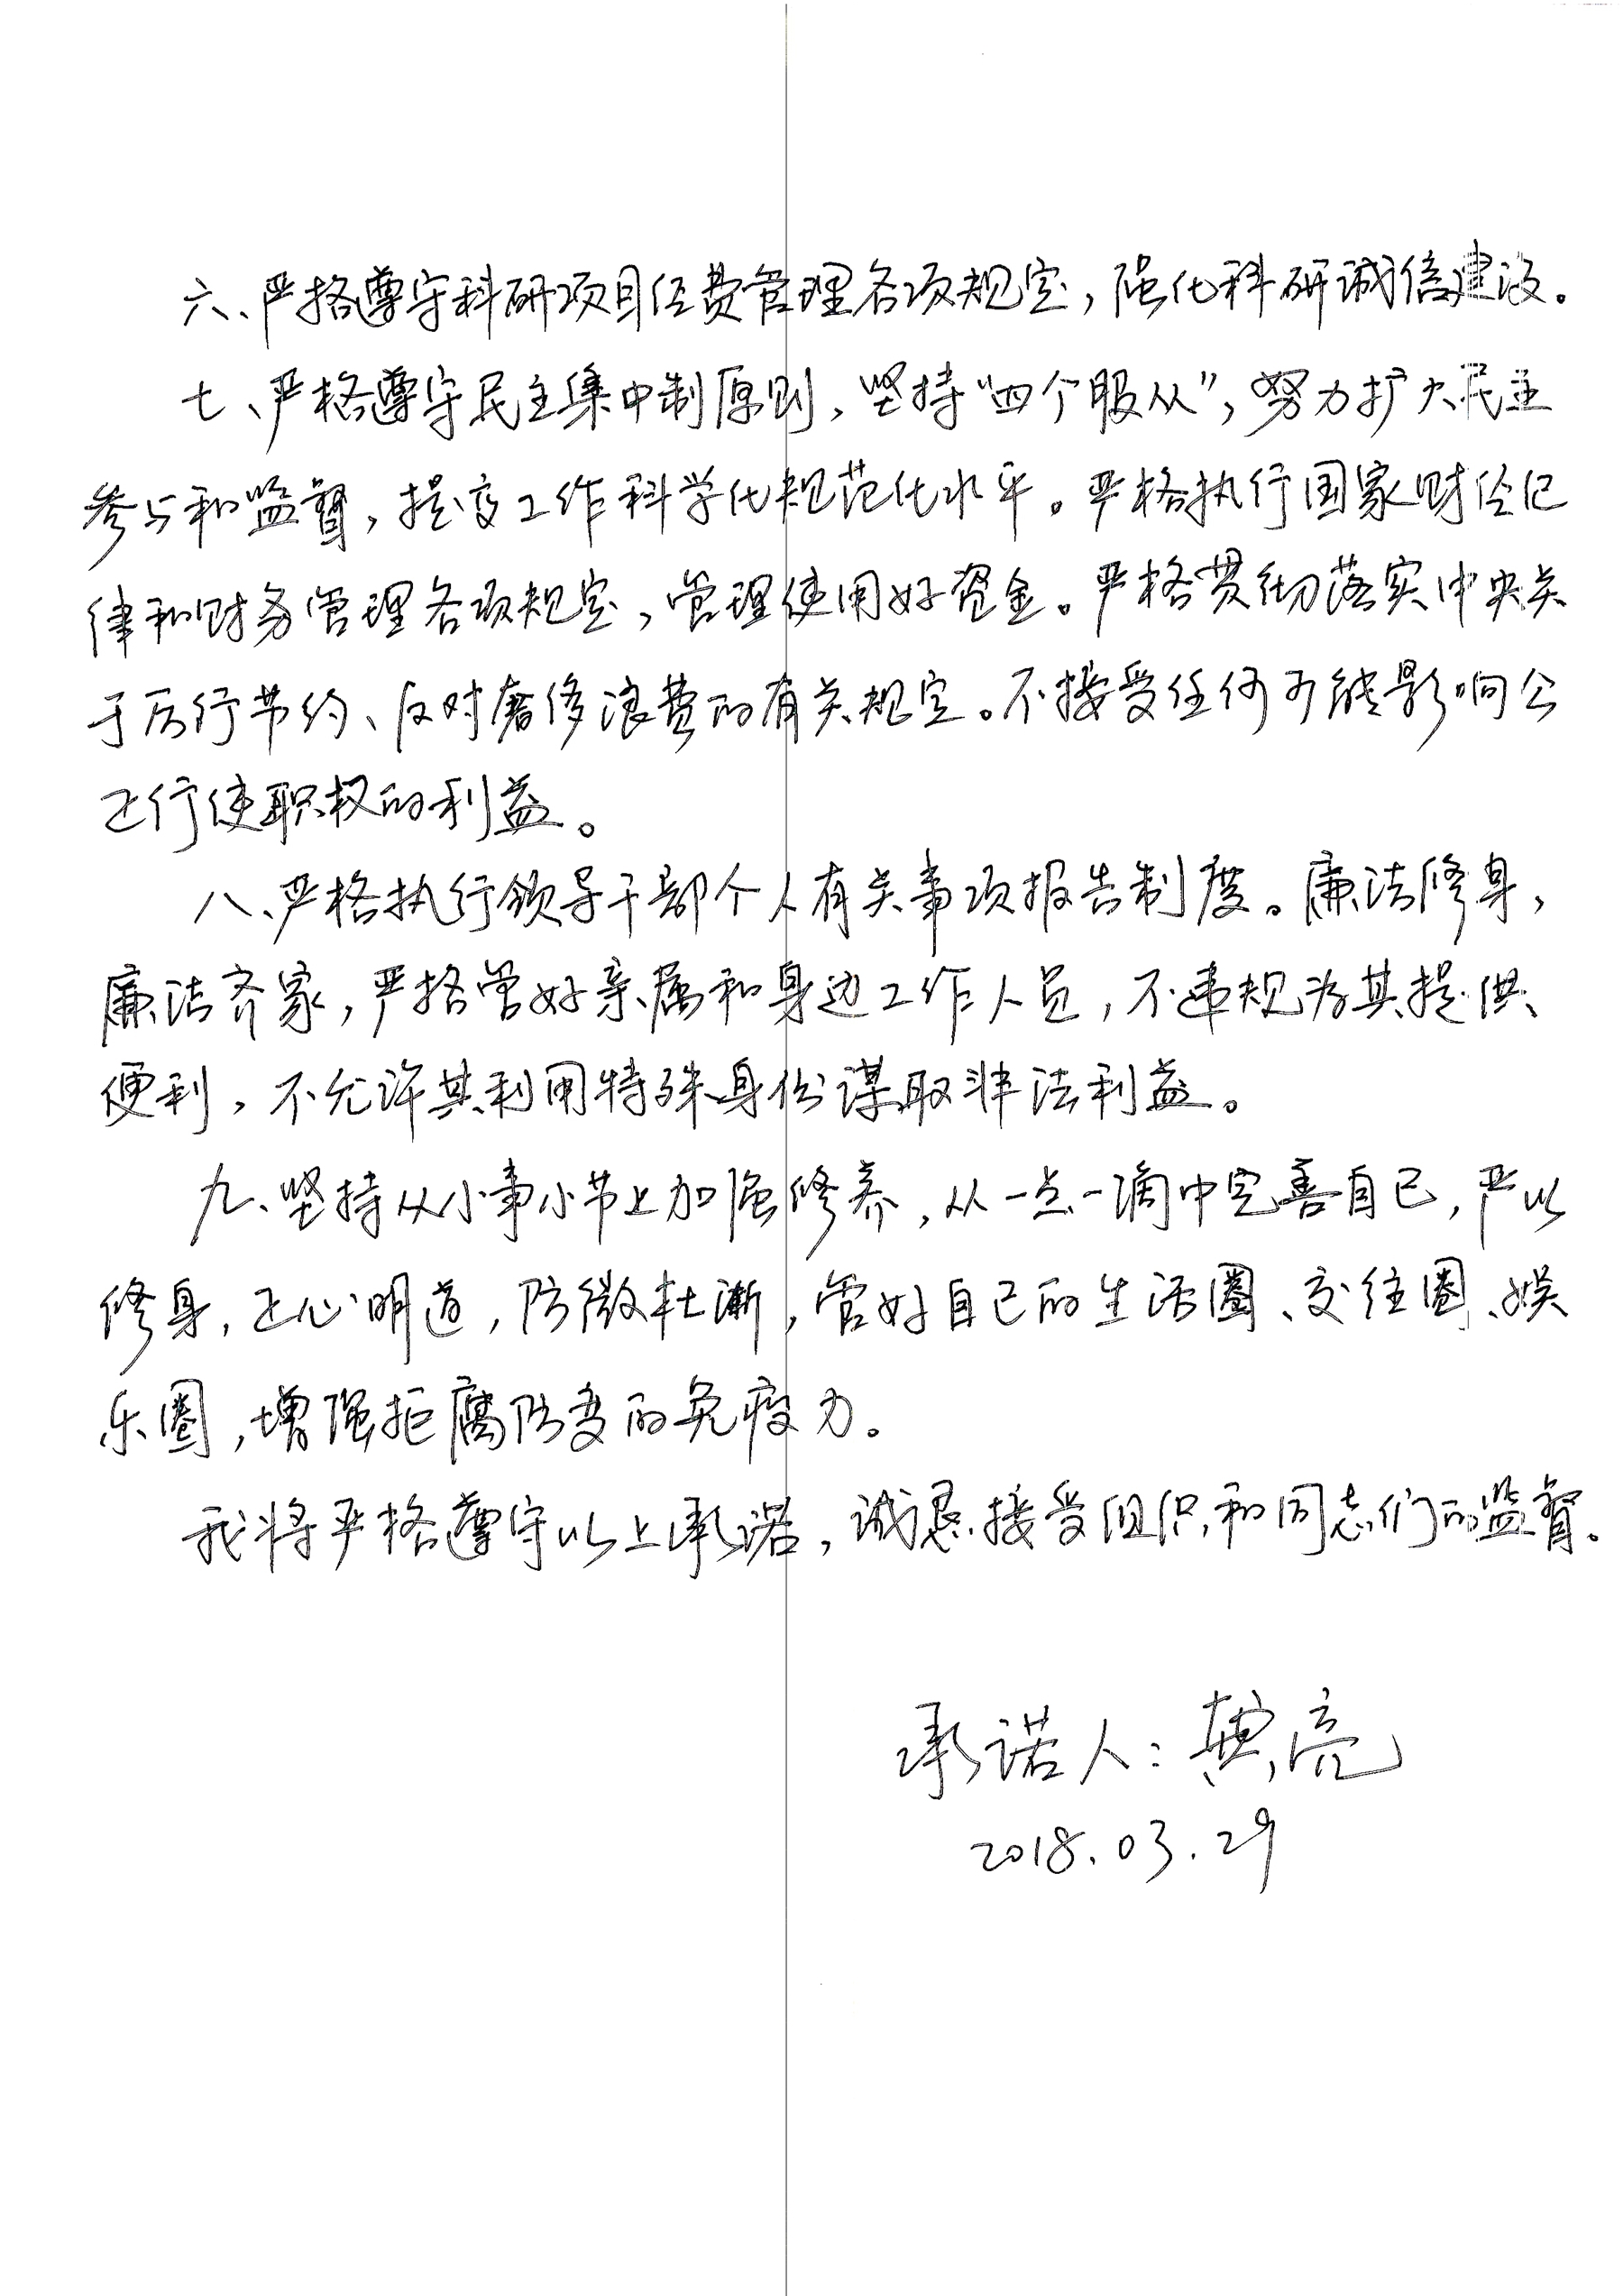 六、严格遵守科研项目经费管理各项规定，强化科研诚信建设。
七、严格遵守民主集中制原则，坚持“四个服从”，努力扩大民主
参与和监督，提高工作科学化规范化水平。严格执行国家财经纪
律和财务管理各项规定，管理使用好资金。严格贯彻落实中央关
于厉行节约、反对奢侈浪费的有关规定。不接受任何可能影响公
正行使职权的利益。
八、严格执行领导干部个人有关事项报告制度。廉洁修身，
廉洁齐家，严格管好亲属和身边工作人员，不违规为其提供
便利，不允许其利用特殊身份谋取非法利益。
九、坚持从小事小节上加强修养，从一点一滴中完善自己，严以
修身，正心明道，防微杜渐，管好自己的生活圈、交往圈、娱
乐圈，增强拒腐防变的免疫力。
我将严格遵守以上承诺，诚恳接受组织和同志们的监督。
承诺人：黄亮
2018.03.29